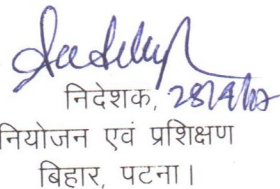 निदेशक,
नियोजन एवं प्रशिक्षण
बिहार, पटना।